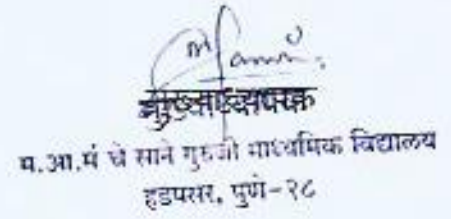 मुख्याध्यापक
म.आ.मं चे साने गुरुजी माध्यमिक विद्यालय
हडपसर, पुणे-२८